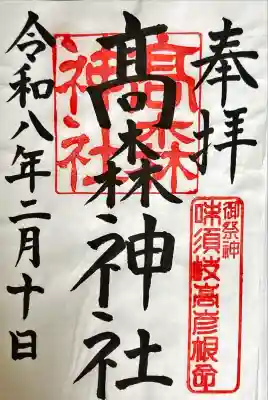 奉拝
御祭神
味須岐高彦根命
髙森神社
髙森
神社
令和八年二月十日